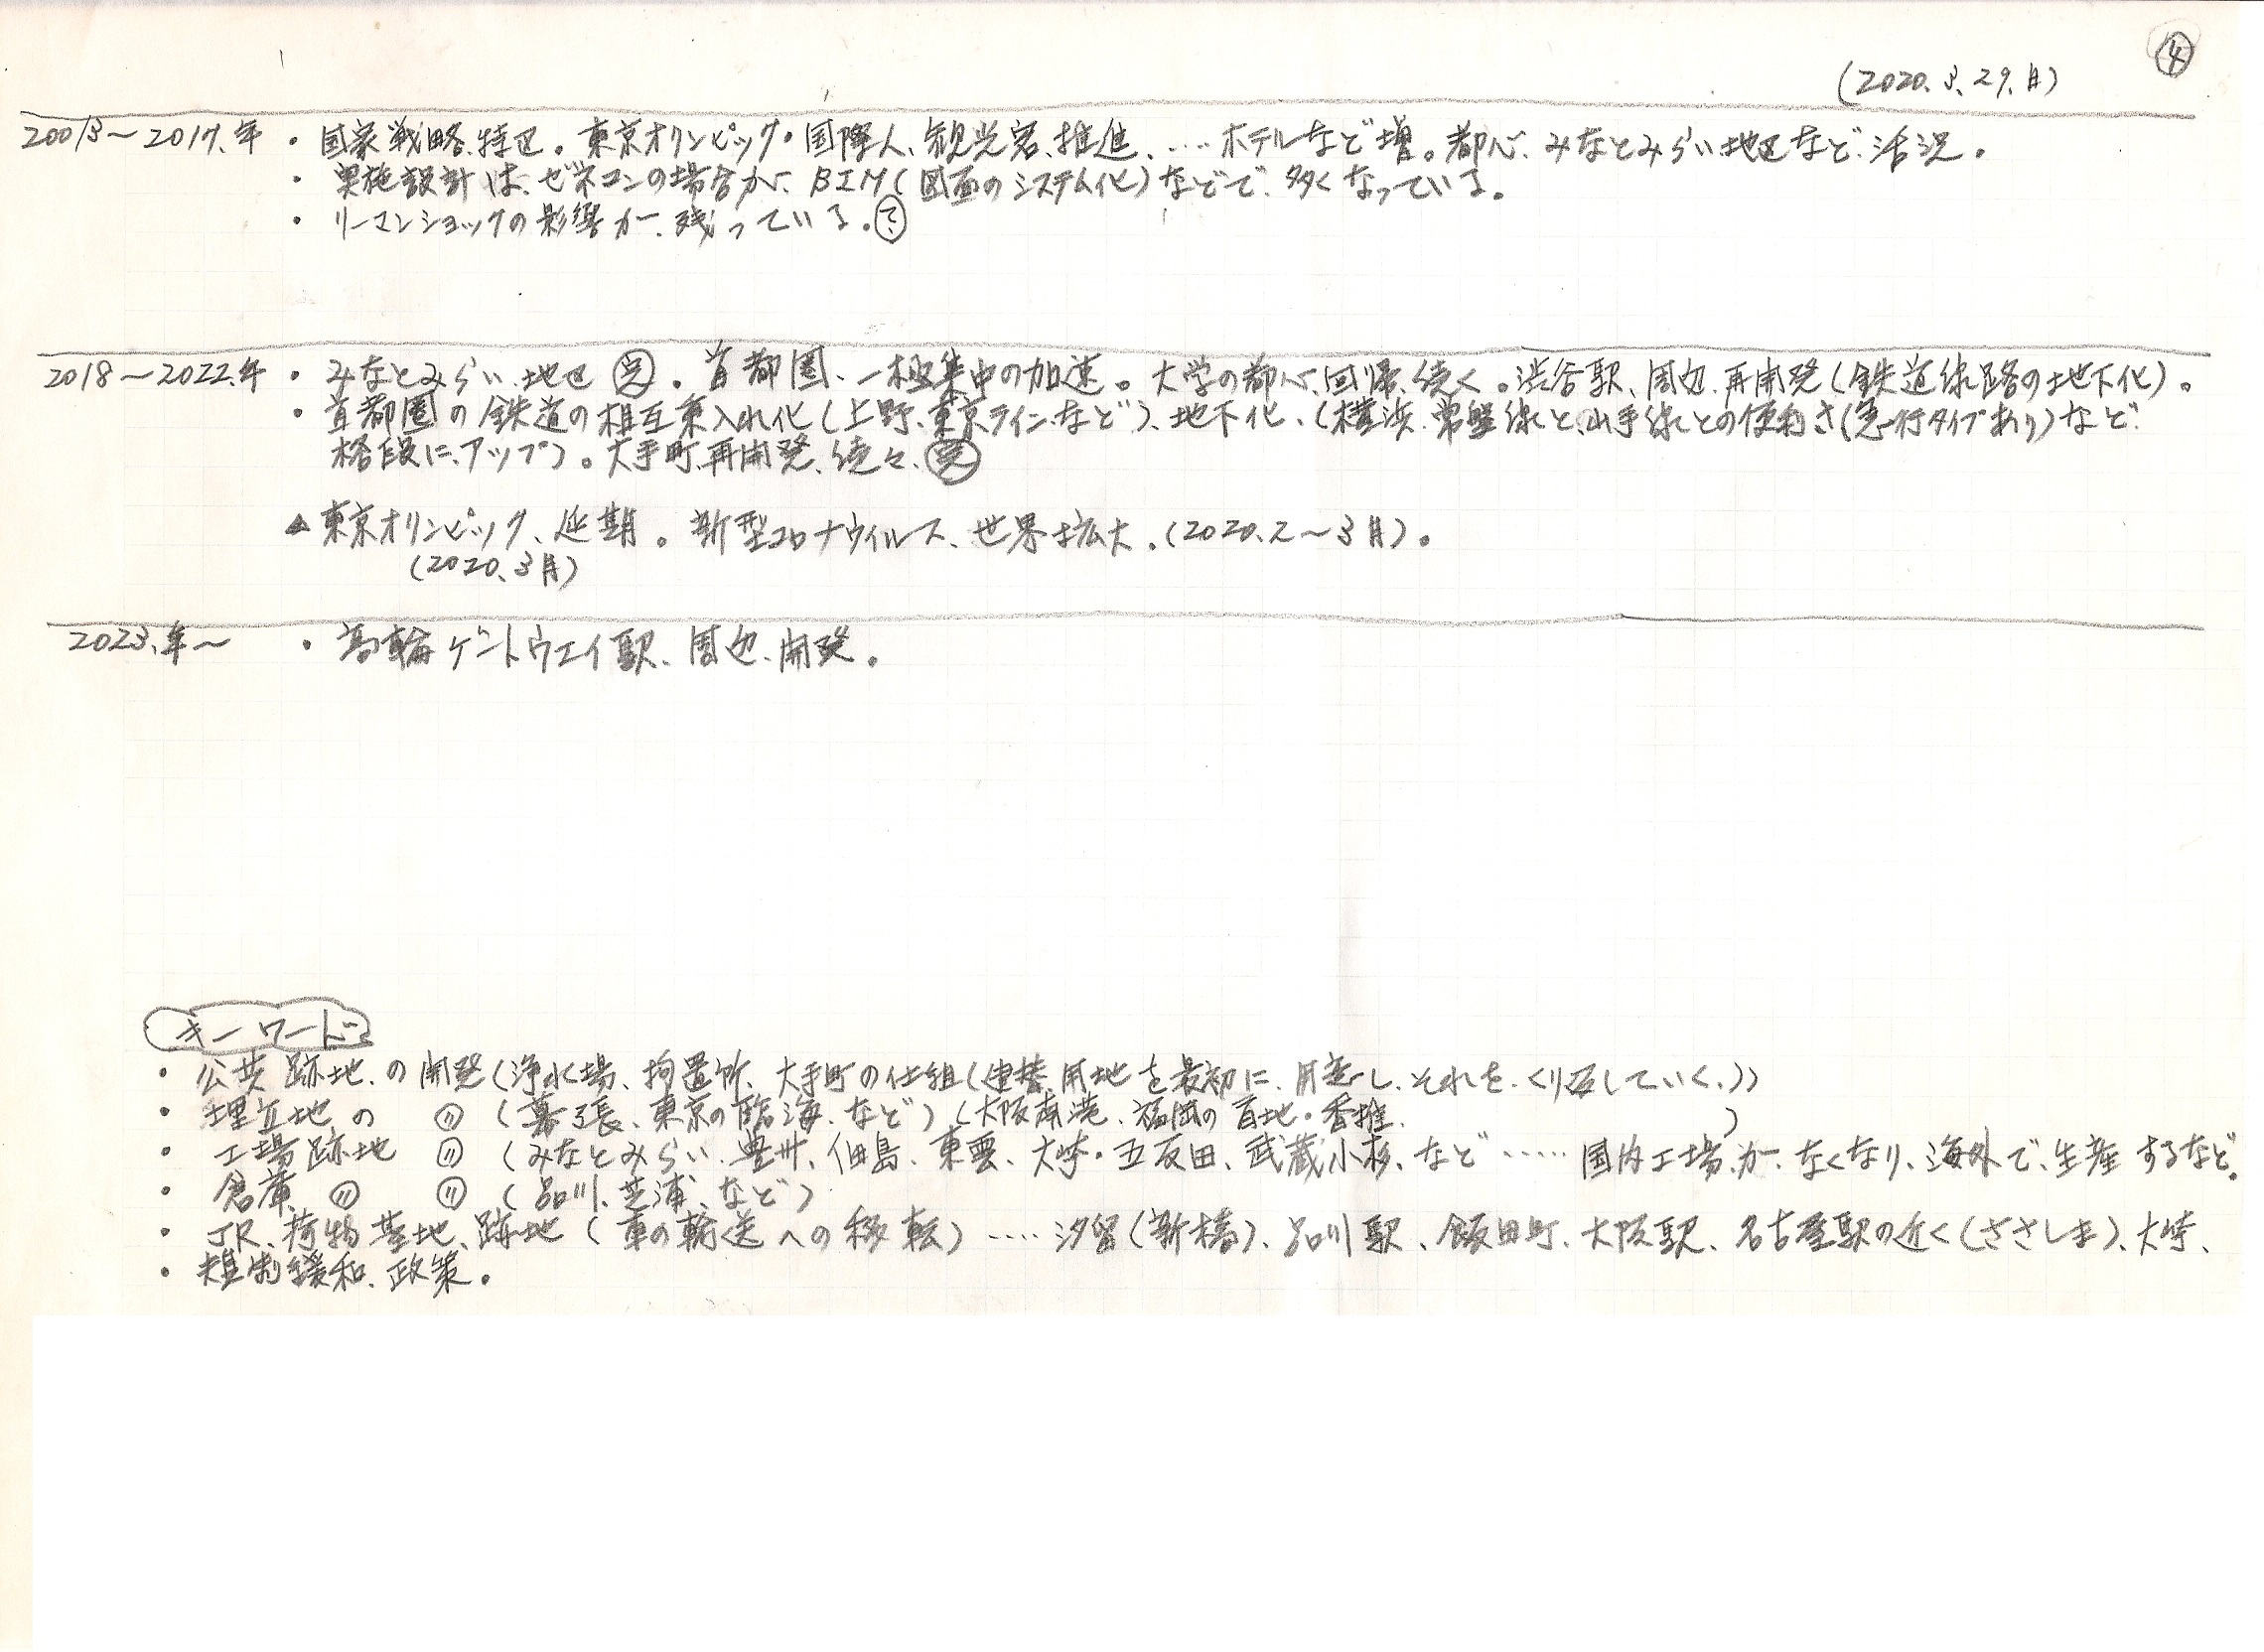 ④
(2020.3.29.日)
20013～2017.年 ・国家戦略.特区。東京オリンピック・国際人、観光客、推進、‥‥ホテルなど増。都心、みなとみらい地区など、活況。
・実施設計は、ゼネコンの場合が、BIM(図面のシステム化)などで、多くなっている。
・リーマンショックの影響が、残っている。
2018～2022.年 ・みなとみらい.地区 完。首都圏、一極集中の加速。大学の都心.回帰、続く。渋谷駅、周辺.再開発(鉄道線路の地下化)。
・首都圏の鉄道の相互乗入れ化(上野、東京ライン、など)、地下化、(横浜、常盤線と、山手線との便利さ(急行タイプあり)など、
格段に、アップ)。大手町.再開発、続々、完
▲東京オリンピック、延期。新型コロナウィルス、世界拡大.(2020.2～3月)。
(2020.3月)
2023.年～ ・高輪ゲートウエイ駅、周辺、開発。
キーワード
・公共跡地.の開発(浄水場、拘置所、大手町の仕組(建替.用地を最初に、用意し、それを、くり返していく.))
・埋立地の 〃 (幕張、東京の臨海、など)(大阪南港、福岡の百地・香椎. )
・工場跡地 〃 (みなとみらい、豊州、佃島、東雲、大崎・五反田、武蔵小杉、など‥‥‥国内工場.が、なくなり、海外で、生産するなど。
・倉庫 〃 〃 (品川、芝浦、など)
・JR.荷物基地、跡地(車の輸送への移転)‥‥汐留(新橋)、品川駅、飯田町、大阪駅、名古屋駅の近く(ささしま)、大崎、
・規制緩和、政策。